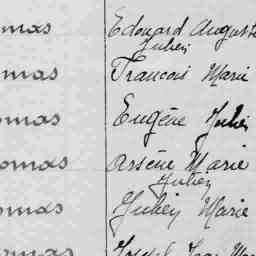 omas Edouard Auguste
Julien
mas Francois Marie
omas Eugène Julien
omas Arsène Marie
Julien
omas Julien Marie
omas Joseph Jean Mar